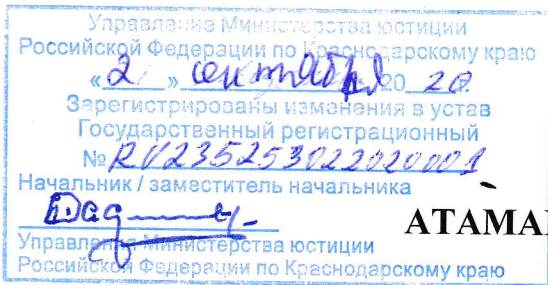 Управление Министерства юстиции
Российской Федерации по Краснодарскому краю
«2» сентября 2020
Зарегистрированы изменения в устав
Государственный регистрационный
№ RU235253022020001
Начальник / заместитель начальника
АТАМА
Управления Министерства юстиции
Российской Федерации по Краснодарскому краю